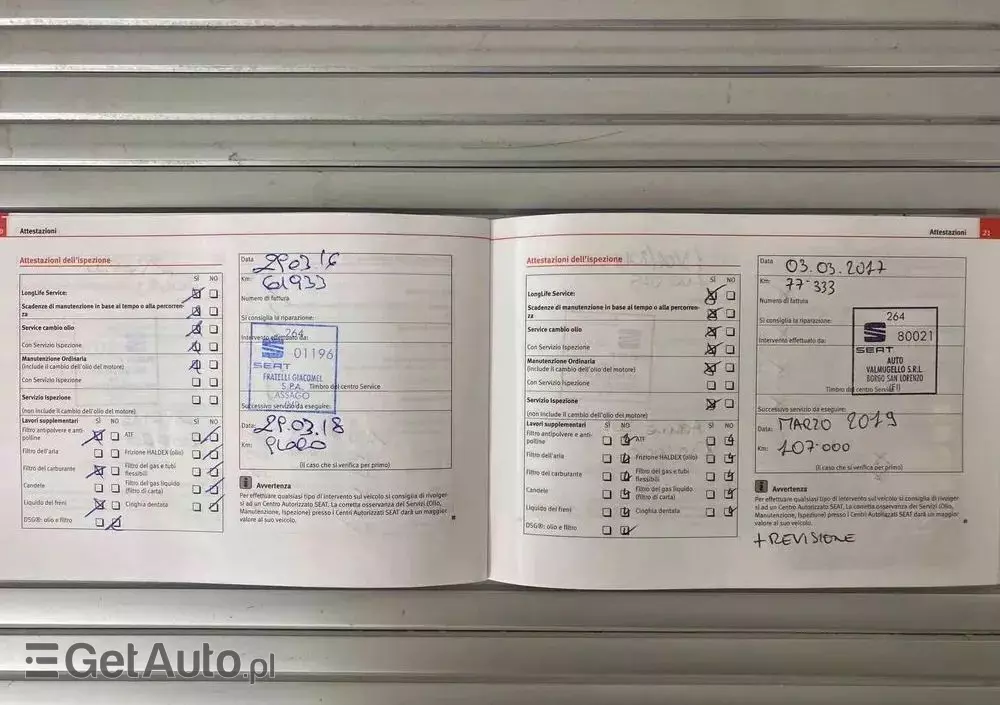 Attestazioni
Attestazioni dell'ispezione
SÌ NO
LongLife Service:
Scadenze di manutenzione in base al tempo o alla percorren-
za
Service cambio olio
Con Servizio Ispezione
Manutenzione Ordinaria
(include il cambio dell'olio del motore)
Con Servizio Ispezione
Servizio Ispezione
(non include il cambio dell'olio del motore)
Lavori supplementari SÌ NO SÌ NO
Filtro antipolvere e anti-
polline
ATF
Filtro dell'aria
Frizione HALDEX (olio)
Filtro del carburante
Filtro del gas e tubi
flessibili
Candele
Filtro del gas liquido
(filtro di carta)
Liquido dei freni
Cinghia dentata
DSG®: olio e filtro
Data 29.03.16
Km: 61933
Numero di fattura
Si consiglia la riparazione:
Intervento effettuato da:
264
01196
SEAT
FRATELLI GIACOMEL
S.P.A.
ASSAGO
Timbro del centro Service
Successivo servizio da eseguire:
Data: 29.03.18
Km:
(Il caso che si verifica per primo)
Avvertenza
Per effettuare qualsiasi tipo di intervento sul veicolo si consiglia di rivolger
si ad un Centro Autorizzato SEAT. La corretta osservanza dei Servizi (Olio,
Manutenzione, Ispezione) presso i Centri Autorizzati SEAT darà un maggior
valore al suo veicolo.
Attestazioni 21
Attestazioni dell'ispezione
SÌ NO
LongLife Service:
Scadenze di manutenzione in base al tempo o alla percorren-
za
Service cambio olio
Con Servizio Ispezione
Manutenzione Ordinaria
(include il cambio dell'olio del motore)
Con Servizio Ispezione
Servizio Ispezione
(non include il cambio dell'olio del motore)
Lavori supplementari SÌ NO SÌ NO
Filtro antipolvere e anti-
polline
ATF
Filtro dell'aria
Frizione HALDEX (olio)
Filtro del carburante
Filtro del gas e tubi
flessibili
Candele
Filtro del gas liquido
(filtro di carta)
Liquido dei freni
Cinghia dentata
DSG®: olio e filtro
Data 03.03.2017
Km: 77.333
Numero di fattura
Si consiglia la riparazione:
Intervento effettuato da:
264
80021
SEAT
AUTO
VALMUGELLO S.R.L.
BORGO SAN LORENZO
(FI)
Timbro del centro Service
Successivo servizio da eseguire:
Data: MARZO 2019
Km: 107.000
(Il caso che si verifica per primo)
Avvertenza
Per effettuare qualsiasi tipo di intervento sul veicolo si consiglia di rivolger
si ad un Centro Autorizzato SEAT. La corretta osservanza dei Servizi (Olio,
Manutenzione, Ispezione) presso i Centri Autorizzati SEAT darà un maggior
valore al suo veicolo.
+ REVISIONE
GetAuto.pl